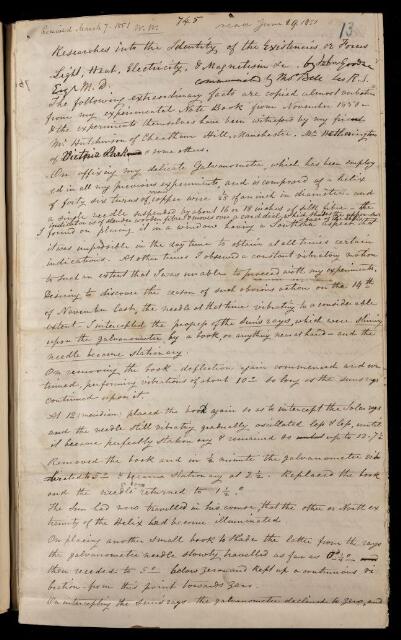 Received March 7. 1851 W. W. 745 read June 19. 1851 13
Researches into the Identity, of the Existencies or Forces
Light, Heat, Electricity, & Magnetism &c. by John Goodman
Esqr M. D. communicated by Thos Bell Sec R. S.
The following extraordinary facts are copied almost verbatim
from my experimental Note Book from November 1850
& the experiments themselves have been witnessed by my friend
Mr Hutchinson of Cheetham Hill, Manchester. Mr Hetherington
of Victoria Park & some others.
On affixing my delicate Galvanometer which has been employ
ed in all my previous experiments, and is composed of a helix
of forty six turns of copper wire of an inch in diameter and
a single needle suspended by about 16 or 18 inches of silk fibre
I found on placing it in a window having a Southern aspect that
it was impossible in the day time to obtain at all times certain
indications. At other times I observed a constant vibratory motion
to such an extent that I was unable to proceed with my experiments.
Desiring to discover the reason of such obvious action on the 14th
of November last, the needle at that time vibrating to a considerable
extent. I intercepted the progress of the sun's rays, which were shining
upon the galvanometer by a book, or anything near at hand and the
needle became stationary.
On removing the book deflection again commenced and con
tinued, performing vibrations of about 10° so long as the sun's rays
continued upon it
At 12 meridian placed the book again so as to intercept the Solar rays
and the needle still vibrating gradually oscillated less & less, until
it became perfectly stationary & remained so up to 12.7½
Removed the book and in ½ minute the galvanometer vib
brated to 5° & became stationary at 2½. Replaced the book
and the needle returned to 1½°
The Sun had now travelled in his course, that the other or North ex
tremity of the Helix had become illuminated.
On placing another small book to shade the latter from the rays
the galvanometer needle slowly travelled as far as
then receded to 5° below zero and kept up a continuous vi
bration from this point towards zero.
On intercepting the Sun's rays the galvanometer declined to zero, and